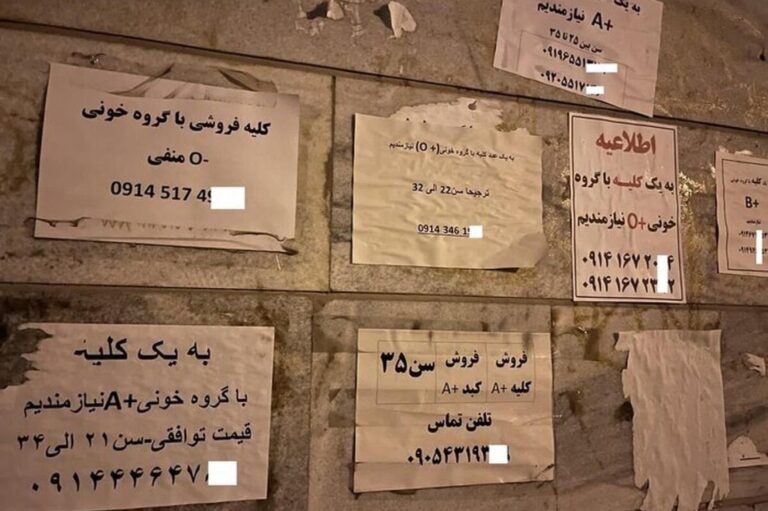 به یک
+A نیازمندیم
سن بین ۲۵ تا ۳۵
۰۹۱۹۶۵۵۱
۰۹۲۰۵۵۱۷
کلیه فروشی با گروه خونی
O- منفی
0914 517 4
به یک عدد کلیه با گروه خونی(+O) نیازمندیم
ترجیحا سن22 الی 32
0914 346 1
اطلاعیه
به یک کلیه با گروه
خونی+O نیازمندیم
۰۹۱۴ ۱۶۷ ۲
۰۹۱۴ ۱۶۷ ۲
کلیه با گروه خونی
B+
نیازمندیم
به یک کلیه
با گروه خونی+Aنیازمندیم
قیمت توافقی-سن ۲۱ الی۳۴
۰۹۱۴۴۴۶۴۷
فروش کلیه +A
فروش کبد +A
سن۳۵
تلفن تماس
۰۹۰۵۴۳۱۹۳